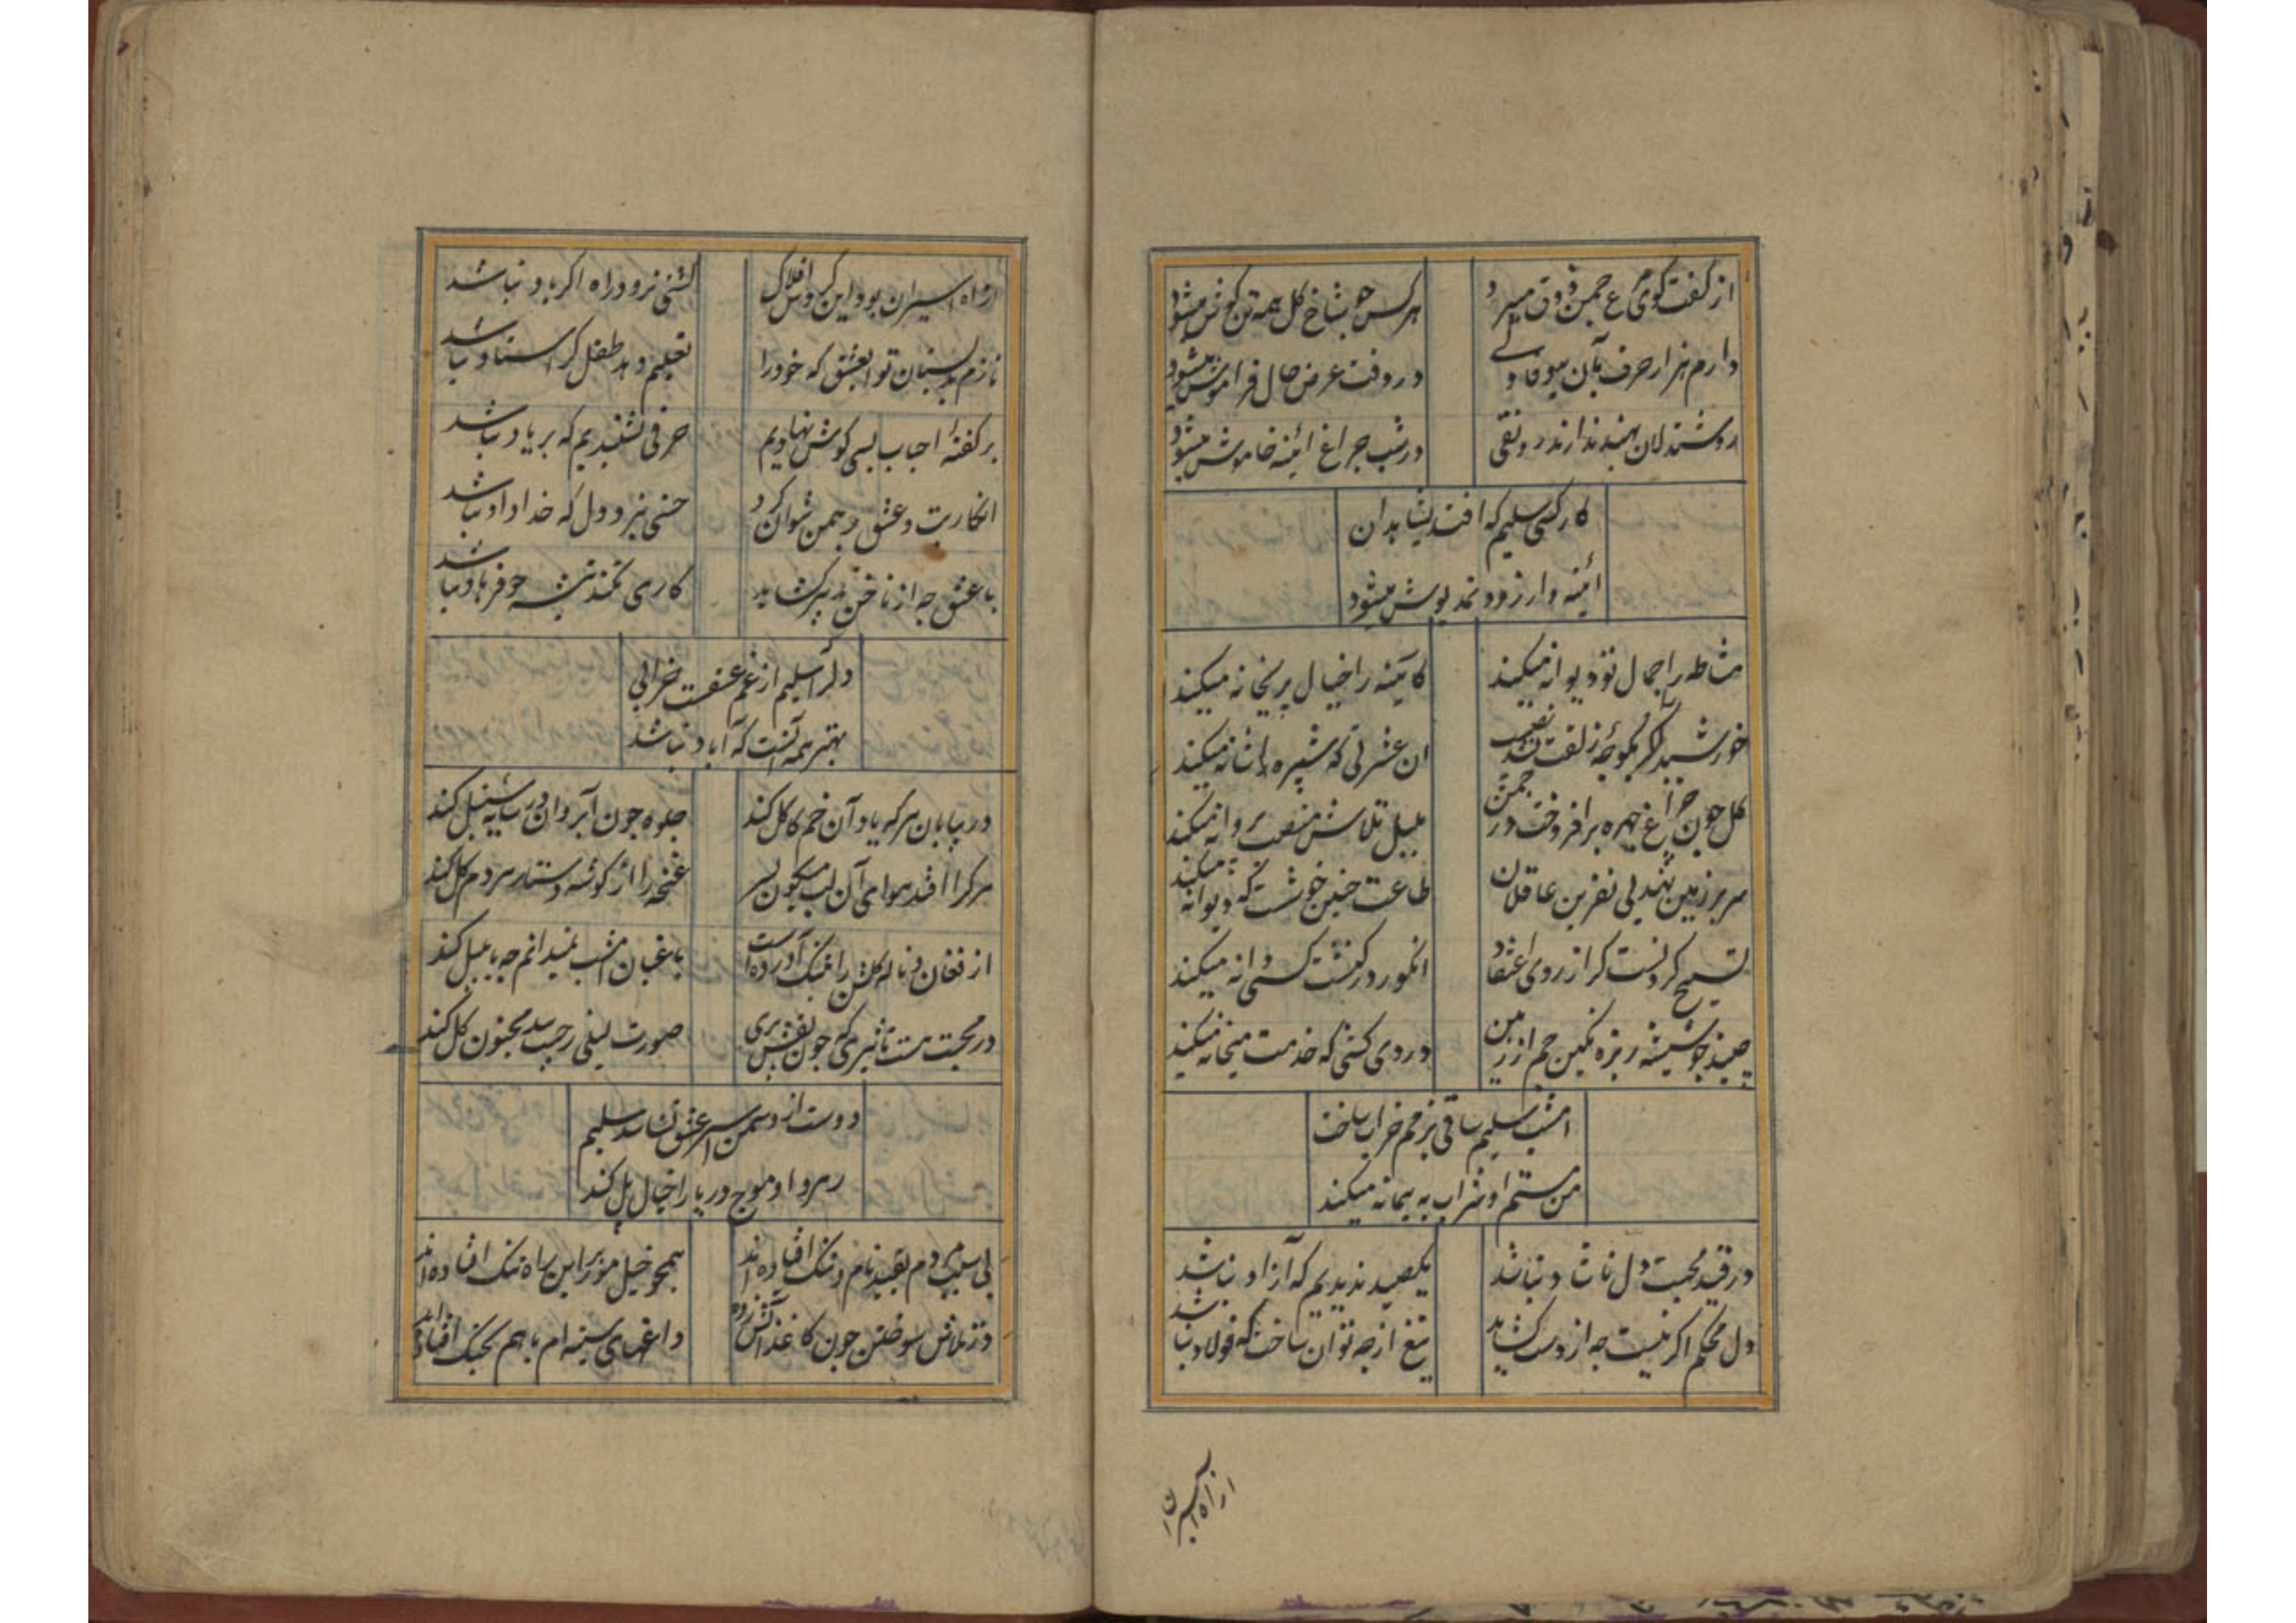 از گفت کوی مرغ چمن ذوق میبرد
هر کس چو شاخ کل همه تن کوش میشود
دارم هزار حرف بآن بیوفا ولی
در وقت عرض حال فراموش میشود
روشندلان بهند ندارند رونقی
در شب چراغ ائینه خاموش میشود
کار کسی سلیم که افتد بشاهدان
ائینه وار زود نمد پوش میشود
مشاطه را جمال تو دیوانه میکند
کائینه را خیال پریخانه میکند
خورشید را مکر بکوچه زلفت نصیب
ان عشرتی که شپره را شانه میکند
کل چون چراغ چهره برافروخت در چمن
بلبل تلاش منصب پروانه میکند
سر بر زمین نهند پی نفرین عاقلان
طاعت چنین خوشست که دیوانه میکند
تسبیح کرد نیست کر از روی اعتقاد
انکور در کنشت کسی دانه میکند
چیند چو شیشه ریزه نکین جم از زمین
دردی کشی که خدمت میخانه میکند
امشب سلیم ساقی بزمم خراب ساخت
من مستم او شراب به پیمانه میکند
در قید محبت دل ناشاد نباشد
یکصید ندیدیم که آزاد نباشد
دل محکم اکر نیست چه از دست کشاید
تیغ از چه توان ساخت که فولاد نباشد
از آه اسیران
از آه اسیران بود این کردش افلاک
کشتی نرود راه اکر باد نباشد
نازم بدبستان تو ای عشق که خود را
تعلیم دهد طفل کر استاد نباشد
بر کفتهٔ احباب بسی کوش نهادیم
حرفی نشنیدیم که بر یاد نباشد
انکار بت و عشق برهمن نتوان کرد
حسنی نبرد دل که خداداد نباشد
با عشق چه از ناخن تدبیر کشاید
کاری نکند تیشه چو فرهاد نباشد
دلرا سلیم از غم عشقست خرابی
بهتر همه آنست که آباد نباشد
در بیابان هر که یاد آن خم کاکل کند
جلوه چون آب روان در سایه سنبل کند
هر کرا افتد هوای آن لب میکون بسر
غنچه را از کوشه دستار مردم کل کند
از فغان و ناله کلشن را بتنک آورده است
باغبان امشب نمیدانم چه با بلبل کند
در محبت هست تاثیری که چون نقش پری
صورت لیلی ز چیب بید مجنون کل کند
دوست از دشمن اسیر عشق نشناسد سلیم
رهرو او موج دریا را خیال پل کند
بی سبب مردم بقید نام و ننک افتاده اند
همچو خیل مور بر این راه تنک افتاده اند
در تلاش سوختن چون کاغذ آتش زده
داغهای سینه ام با هم بجنک افتاده اند